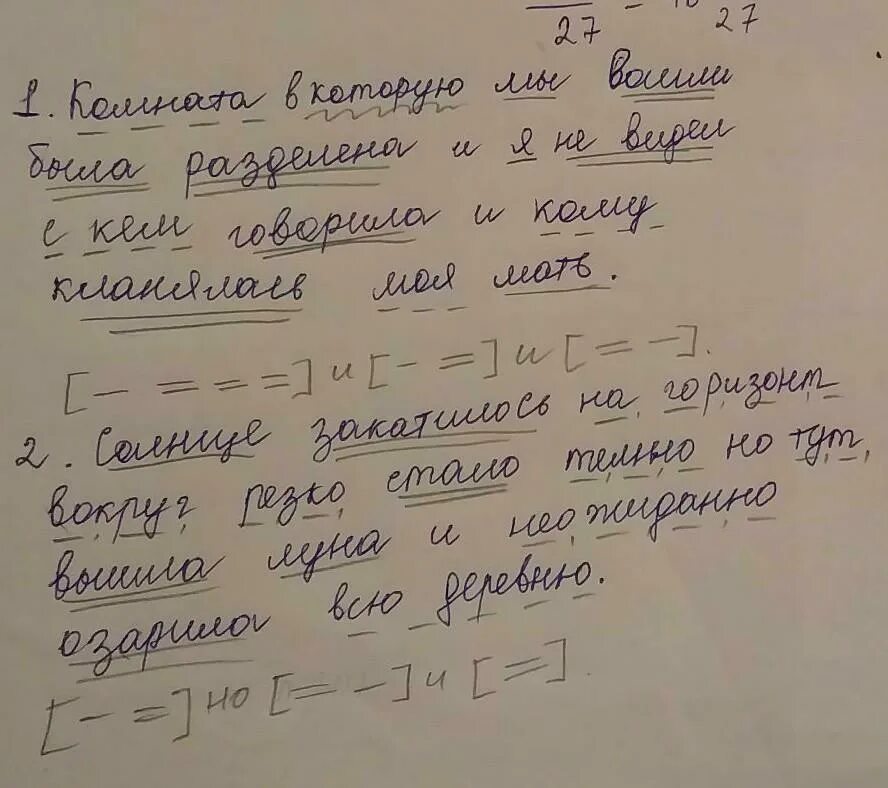 27 27
1. Комната в которую мы вошли
была разделена и я не видел
с кем говорила и кому
кланялась моя мать.
[— = = =] и [— =] и [= —].
2. Солнце закатилось на горизонт
вокруг резко стало темно но тут
вышла луна и неожиданно
озарила всю деревню.
[— =] но [= —] и [=].